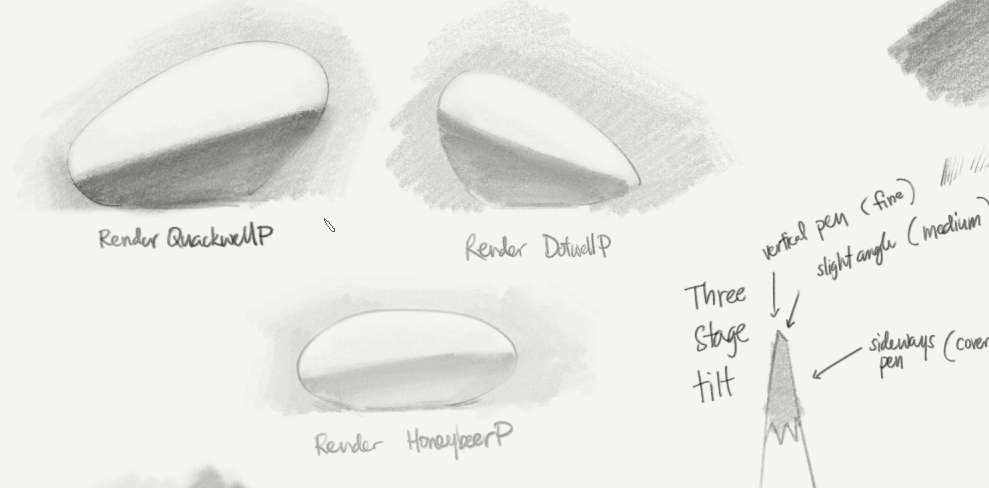 Render QuackwellP
Render DotwellP
Render HoneybeerP
Three
stage
tilt
vertical pen (fine)
slight angle (medium)
sideways (cover
pen